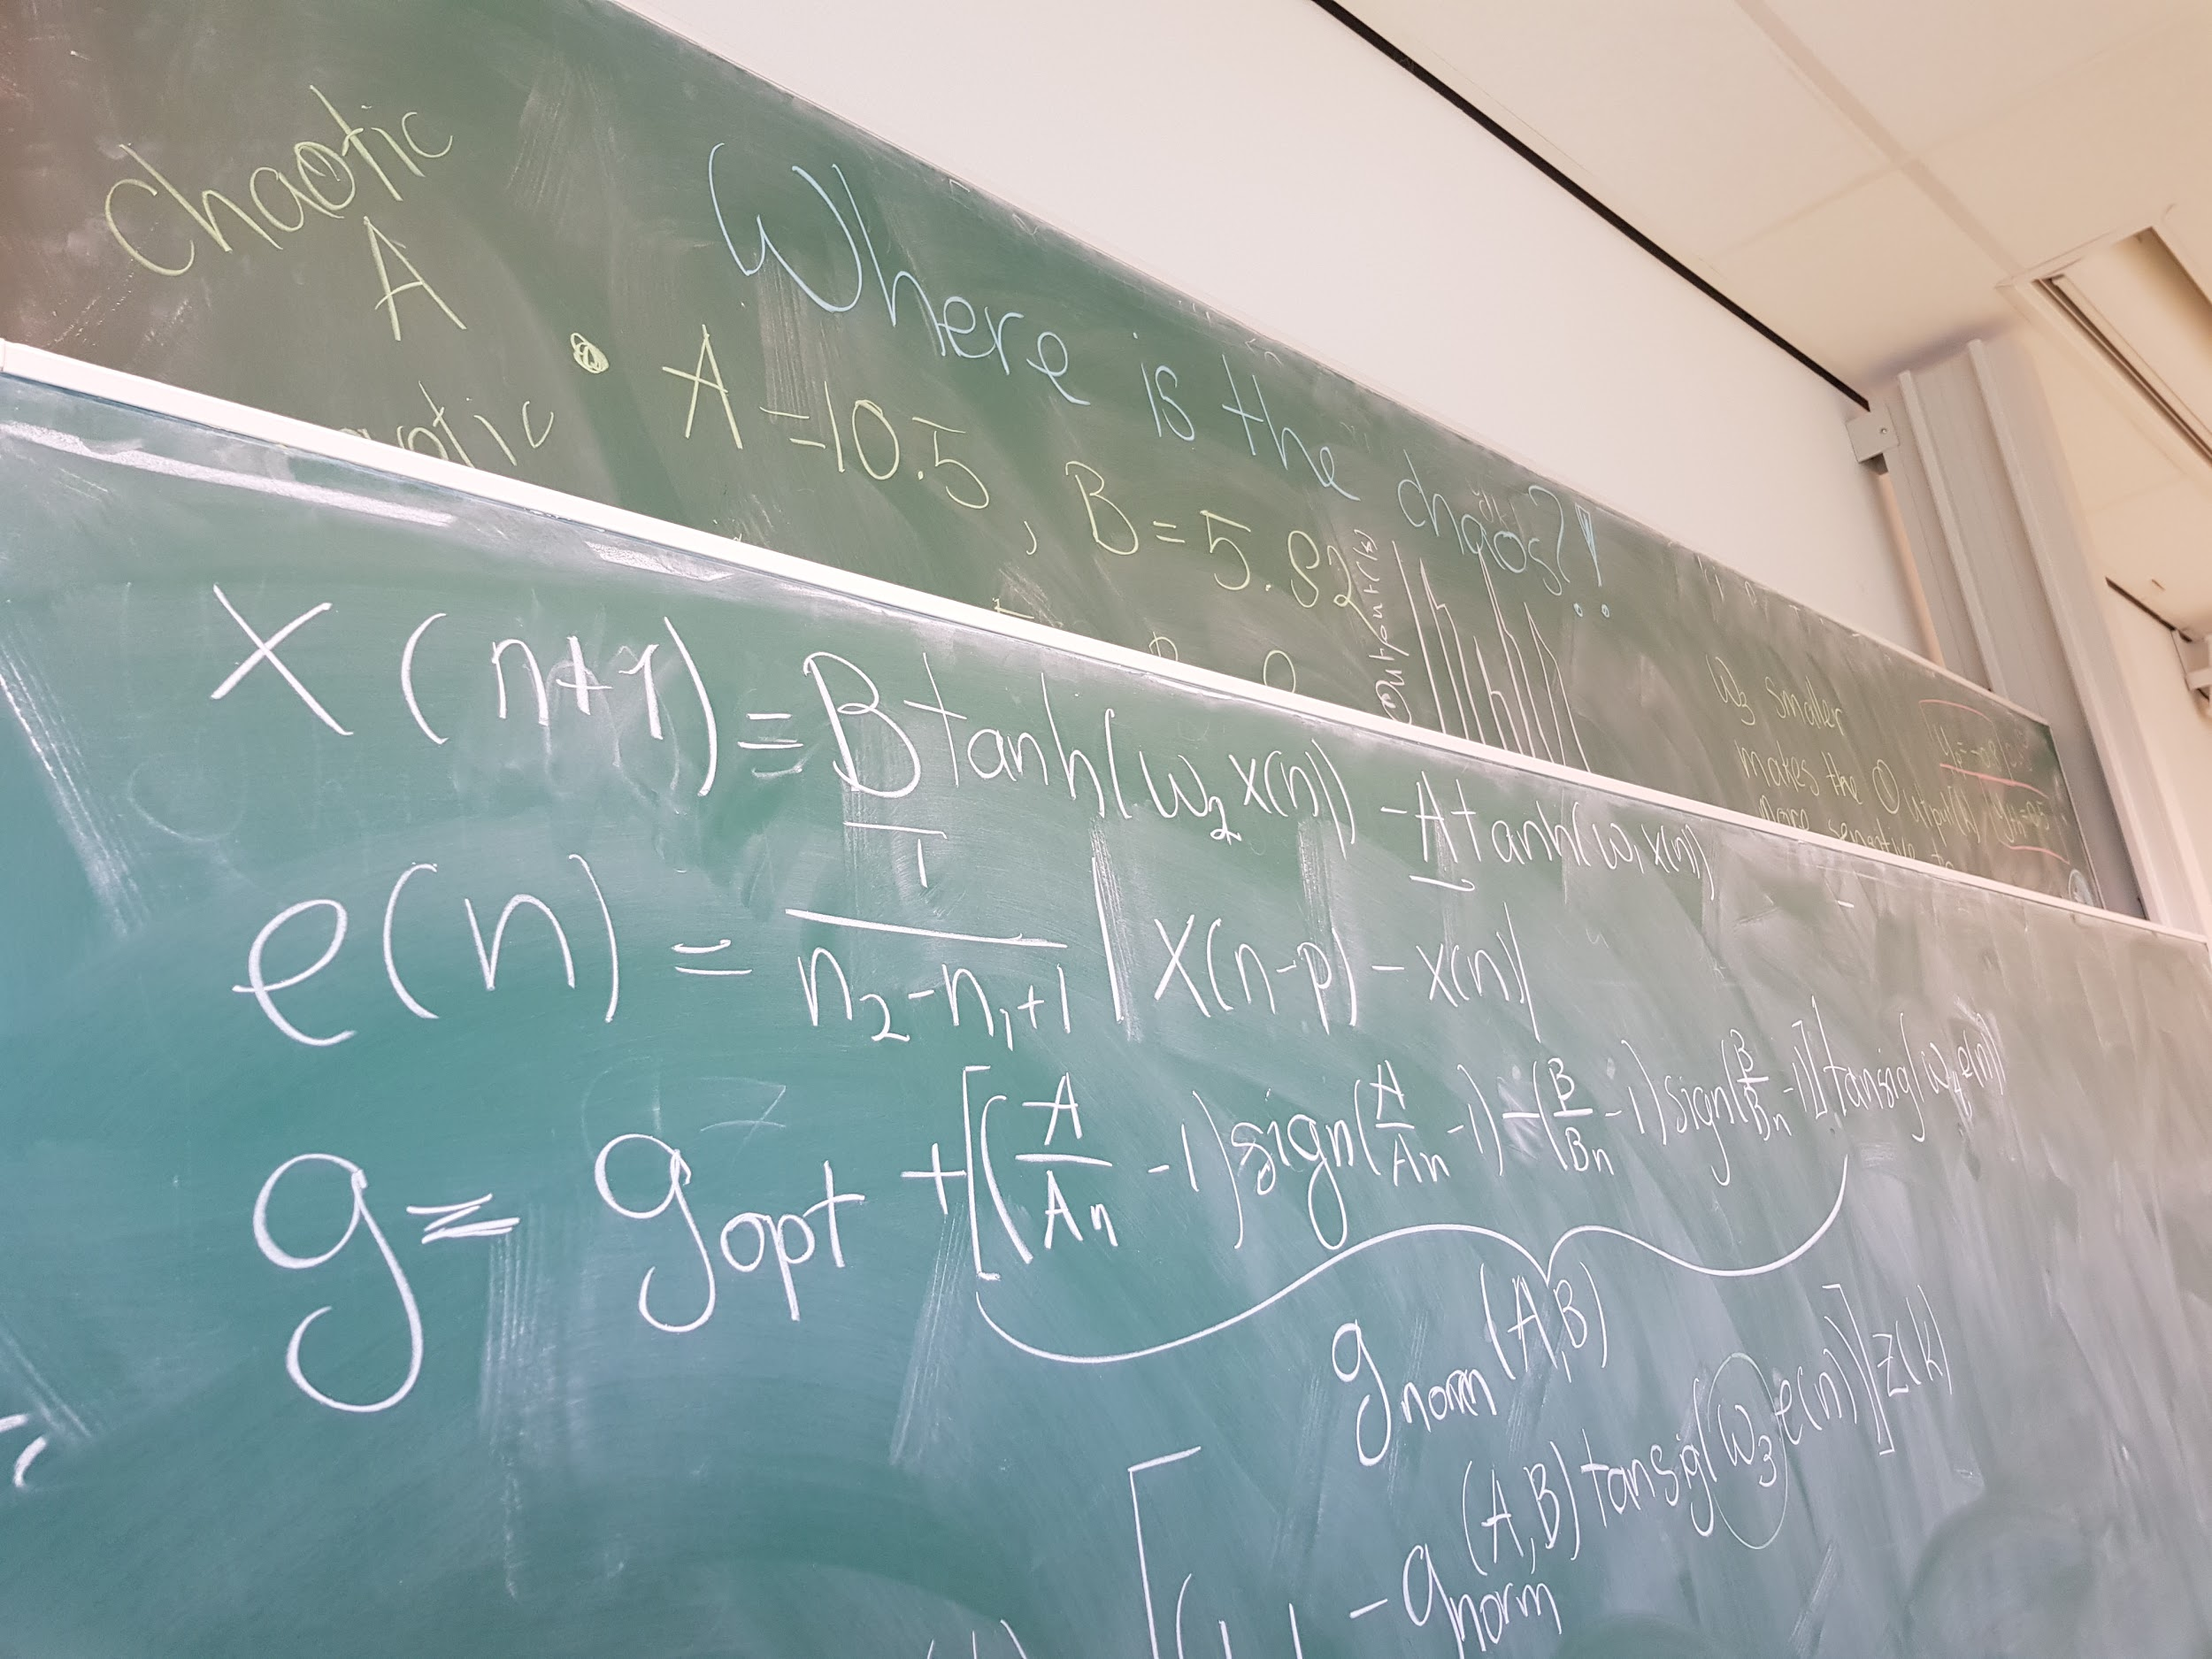 Chaotic
A
Where is the chaos?!
• A=10.5, B=5.82
Output(k)
ω3 smaller
makes the Output(k)
more sensitive to
X(n+1)=B tanh(ω2 x(n)) -A tanh(ω1 x(n))
e(n) = 1/(n2-n1+1) |X(n-p) - x(n)|
g= gopt +[(A/An -1)sign(A/An -1)-(B/Bn -1)sign(B/Bn -1)]tansig(ω e(n))
gnorm(A,B)
-gnorm(A,B)tansig(ω3 e(n))]z(k)